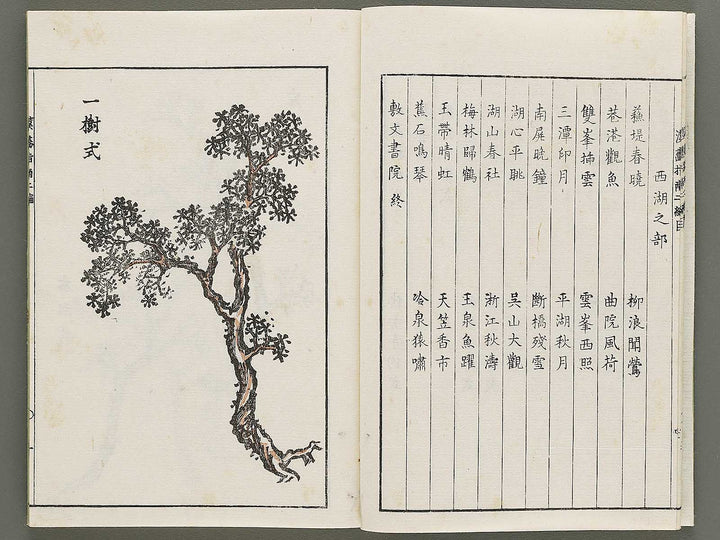 西湖之部
蘓堤春曉　柳浪聞鶯
港觀魚　曲院風荷
雙峯挿雲　雲峯西照
三潭印月　平湖秋月
南屏晩鐘　斷橋殘雪
湖心平眺　吳山大觀
湖山春社　浙江秋濤
梅林歸鶴　玉泉魚躍
玉帶晴虹　天笠香市
蕉石鳴琴　冷泉猿嘯
敷文書院　終
一樹式